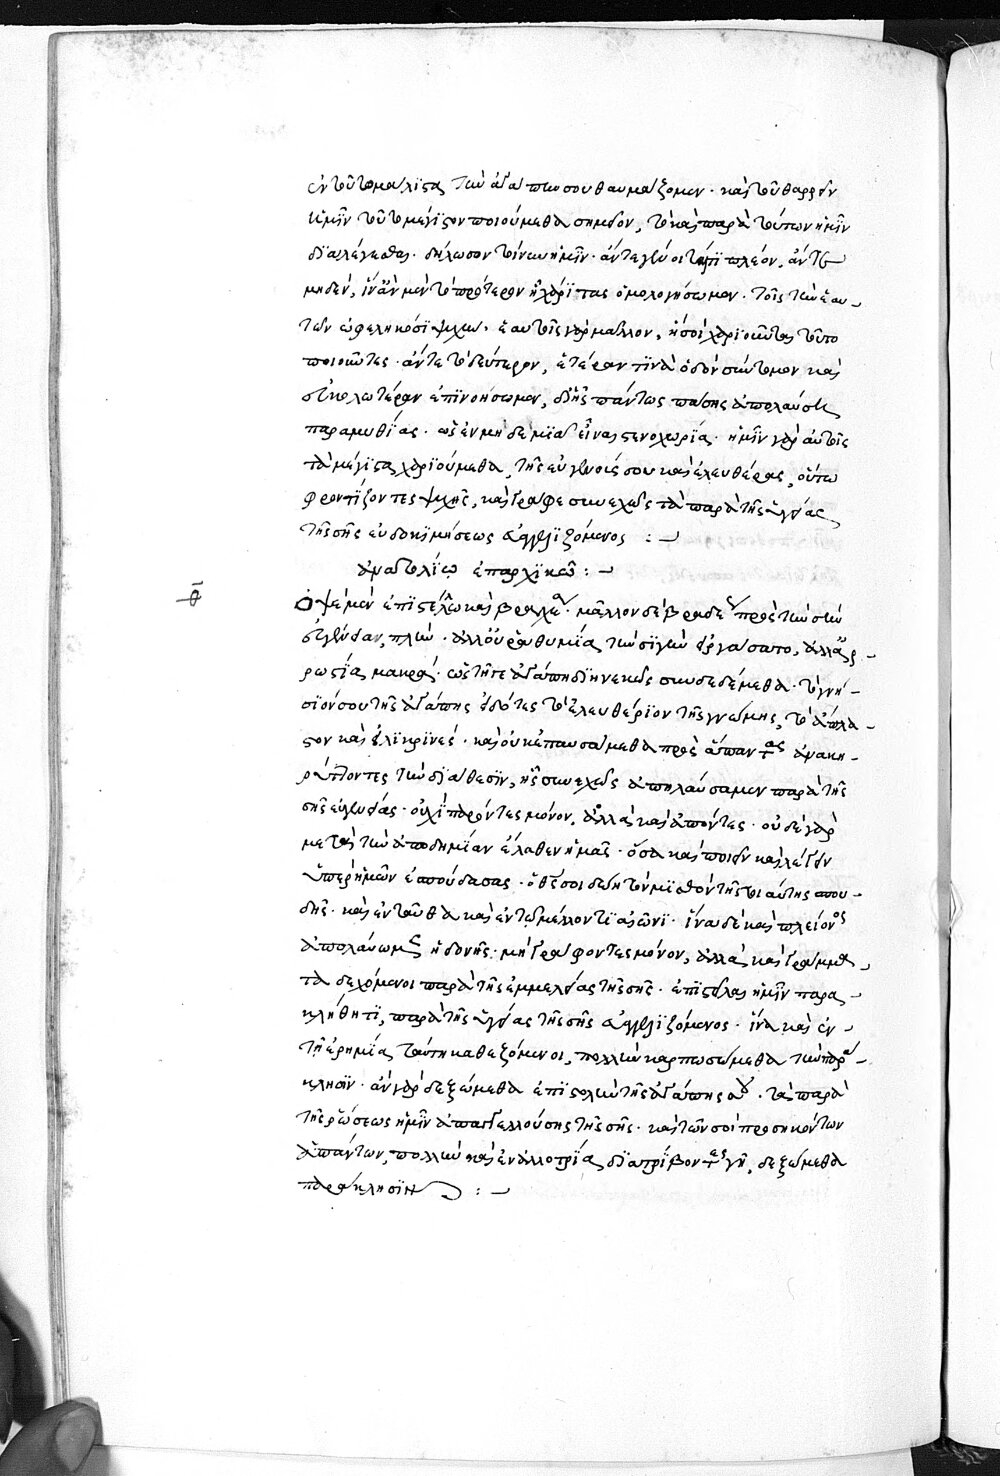 ἐν τούτω μάλιστα τὴν ἀγάπην σου θαυμάζομεν· καὶ τοῦ θαρρεῖν
ὑμῖν τοῦτο μέγιστον ποιούμεθα σημεῖον, τὸ καὶ παρὰ τούτων ἡμῖν
διαλέγεσθαι· δήλωσον τοίνυν ἡμῖν· ἄν τε γένοιτό τι πλέον, ἄν τε
μηδέν, ἵν' ἂν μὲν τὸ πρότερον ᾖ χάριτας ὁμολογήσωμεν· τοῖς τὴν ἑαυ-
τῶν ὠφεληκόσι ψυχήν· ἑαυτοῖς γὰρ μᾶλλον, ἢ σοὶ χαριοῦνται τοῦτο
ποιοῦντες· ἄν τε τὸ δεύτερον, ἑτέραν τινὰ ὁδὸν σύντομον καὶ
εὐκολωτέραν ἐπινοήσωμεν, δι' ἧς πάντως πάσης ἀπολαύσει
παραμυθίας· ὡς ἐν μηδεμιᾶ εἶναι στενοχωρία· ἡμῖν γὰρ αὐτοῖς
τὰ μέγιστα χαριούμεθα, τῆς εὐγενοῦς σου καὶ ἐλευθέρας, οὕτω
φροντίζοντες ψυχῆς, καὶ γράφε συνεχῶς τὰ παρὰ τῆς ὑγείας
τῆς σῆς εὐδοκιμήσεως εὐαγγελιζόμενος :—
ἀνατολίω ἐπαρχικῶ :—
θ
Ὀψὲ μὲν ἐπιστέλλω καὶ βραδέως· μᾶλλον δὲ βραδέως πρὸς τὴν σὴν
εὐγένειαν, πλὴν· ἀλλ' οὐ ῥαθυμία τὴν σιγὴν εἰργάσατο, ἀλλ' ἀρ-
ρωστία μακρά· ὡς τῆ γε ἀγάπη διηνεκῶς συνδεδέμεθα· τὸ γνή-
σιόν σου τῆς ἀγάπης εἰδότες τὸ ἐλευθέριον τῆς γνώμης, τὸ ἄπλα-
στον καὶ εἰλικρινές· καὶ οὐκ ἐπαυσάμεθα πρὸς ἅπαντας ἀνακη-
ρύττοντες τὴν διάθεσιν, ἧς συνεχῶς ἀπηλαύσαμεν παρὰ τῆς
σῆς εὐγενείας· οὐχὶ παρόντες μόνον, ἀλλὰ καὶ ἀπόντες· οὐδὲ γὰρ
μετὰ τὴν ἀποδημίαν ἔλαθεν ἡμᾶς· ὅσα καὶ ποιεῖν καὶ λέγειν
ὑπὲρ ἡμῶν ἐσπούδασας· ὁ θεός σοι δώη τὸν μισθὸν τῆς τοιαύτης σπου-
δῆς· καὶ ἐνταῦθα καὶ ἐν τῶ μέλλοντι αἰῶνι· ἵνα δὲ καὶ πλείονος
ἀπολαύωμεν ἡδονῆς· μὴ γράφοντες μόνον, ἀλλὰ καὶ γράμμα-
τα δεχόμενοι παρὰ τῆς ἐμμελείας τῆς σῆς· ἐπιστεῖλαι ἡμῖν παρα-
κλήθητι, παρὰ τῆς ὑγείας τῆς σῆς εὐαγγελιζόμενος· ἵνα καὶ ἐν
τῆ ἐρημία ταύτη καθεζόμενοι, πολλὴν καρπωσώμεθα τὴν παρά-
κλησιν· ἂν γὰρ δεξώμεθα ἐπιστολὴν τῆς ἀγάπης σου· τὰ παρὰ
τῆς ῥώσεως ἡμῖν ἀπαγγελλούσης τῆς σῆς· καὶ τῶν σοὶ προσηκόντων
ἁπάντων, πολλὴν καὶ ἐν ἀλλοτρία διατρίβοντες γῆ, δεξώμεθα
παράκλησιν :—